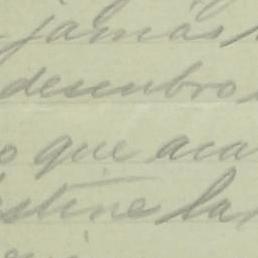 jamás
descubro
o que aca
estine la